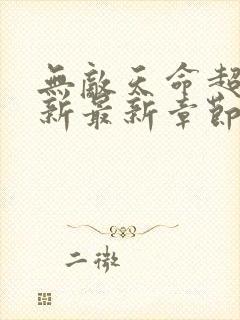 無敵天命超
新最新章節
二微